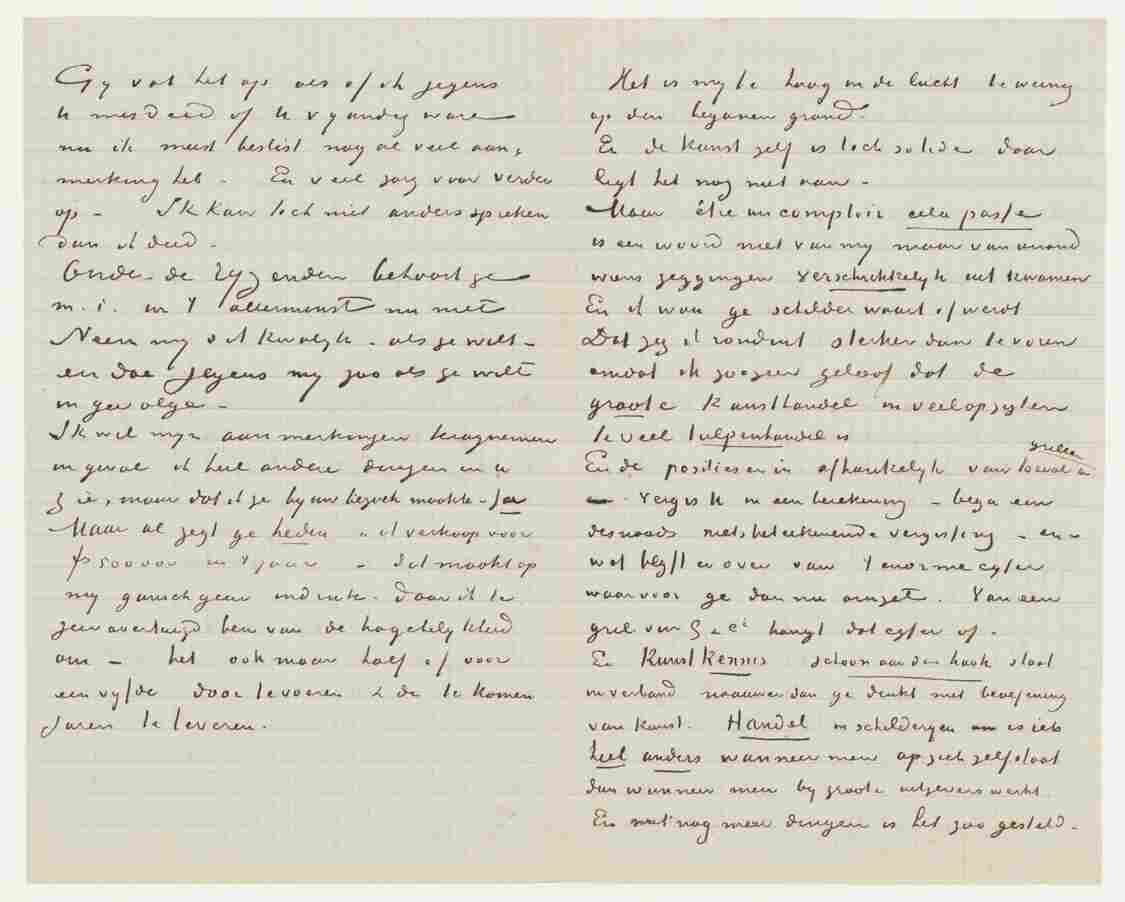 Gy vat het op als of ik jegens
U misdeed of U vyandig ware
nu ik meest beslist nog al veel aan,
merking heb – En veel zorg voor verder
op – Ik kan toch niet anders spreken
dan ik deed –
Onder de vyanden behoort ge
m.i. in 't allerminst nu niet
Neem my dit kwalyk – als ge wilt –
en doe jegens my zoo als ge wilt
in gevolge –
Ik wil myn aanmerkingen terugnemen
in geval ik heel andere dingen in u
zie, maar dat ik ze by uw bezoek maakte – ja
Maar al zegt ge heden „ik verkoop voor
f 500000 in 't jaar – dat maakt op
my gansch geen indruk. Daar ik te
zeer overtuigd ben van de hagchelykheid
om – het ook maar half of voor
een vyfde door te voeren & de te komen
Jaren te leveren.
Het is my te hoog in de lucht te weinig
op den beganen grond.
En de kunst zelf is toch solide daar
ligt het nog niet aan –
Maar être un comptoir cela passe
is een woord niet van my maar van iemand
wiens zeggingen verschrikkelyk uit kwamen
En ik wou ge schilder waart of werdt
Dat zeg ik ronduit sterker dan te voren
omdat ik zoozeer geloof dat de
groote kunsthandel in veel opzigten
te veel tulpenhandel is
En de posities er in afhankelyk van toeval en
grillen
– Vergis U in een berekening – bega een
desnoods niets beteekenende vergissing – en –
wat blyft er over van 't enorme cyfer
waarvoor ge dan nu omzet. Van een
gril van G & Cie hangt dat cyfer af –
En Kunst Kennis schoon aan den haak staat
in verband naauwer dan ge denkt met beoefening
van kunst. Handel in schilderyen is iets
heel anders wanneer men op zich zelf staat
dan wanneer men by groote uitgevers werkt.
En met nog meer dingen is het zoo gesteld –